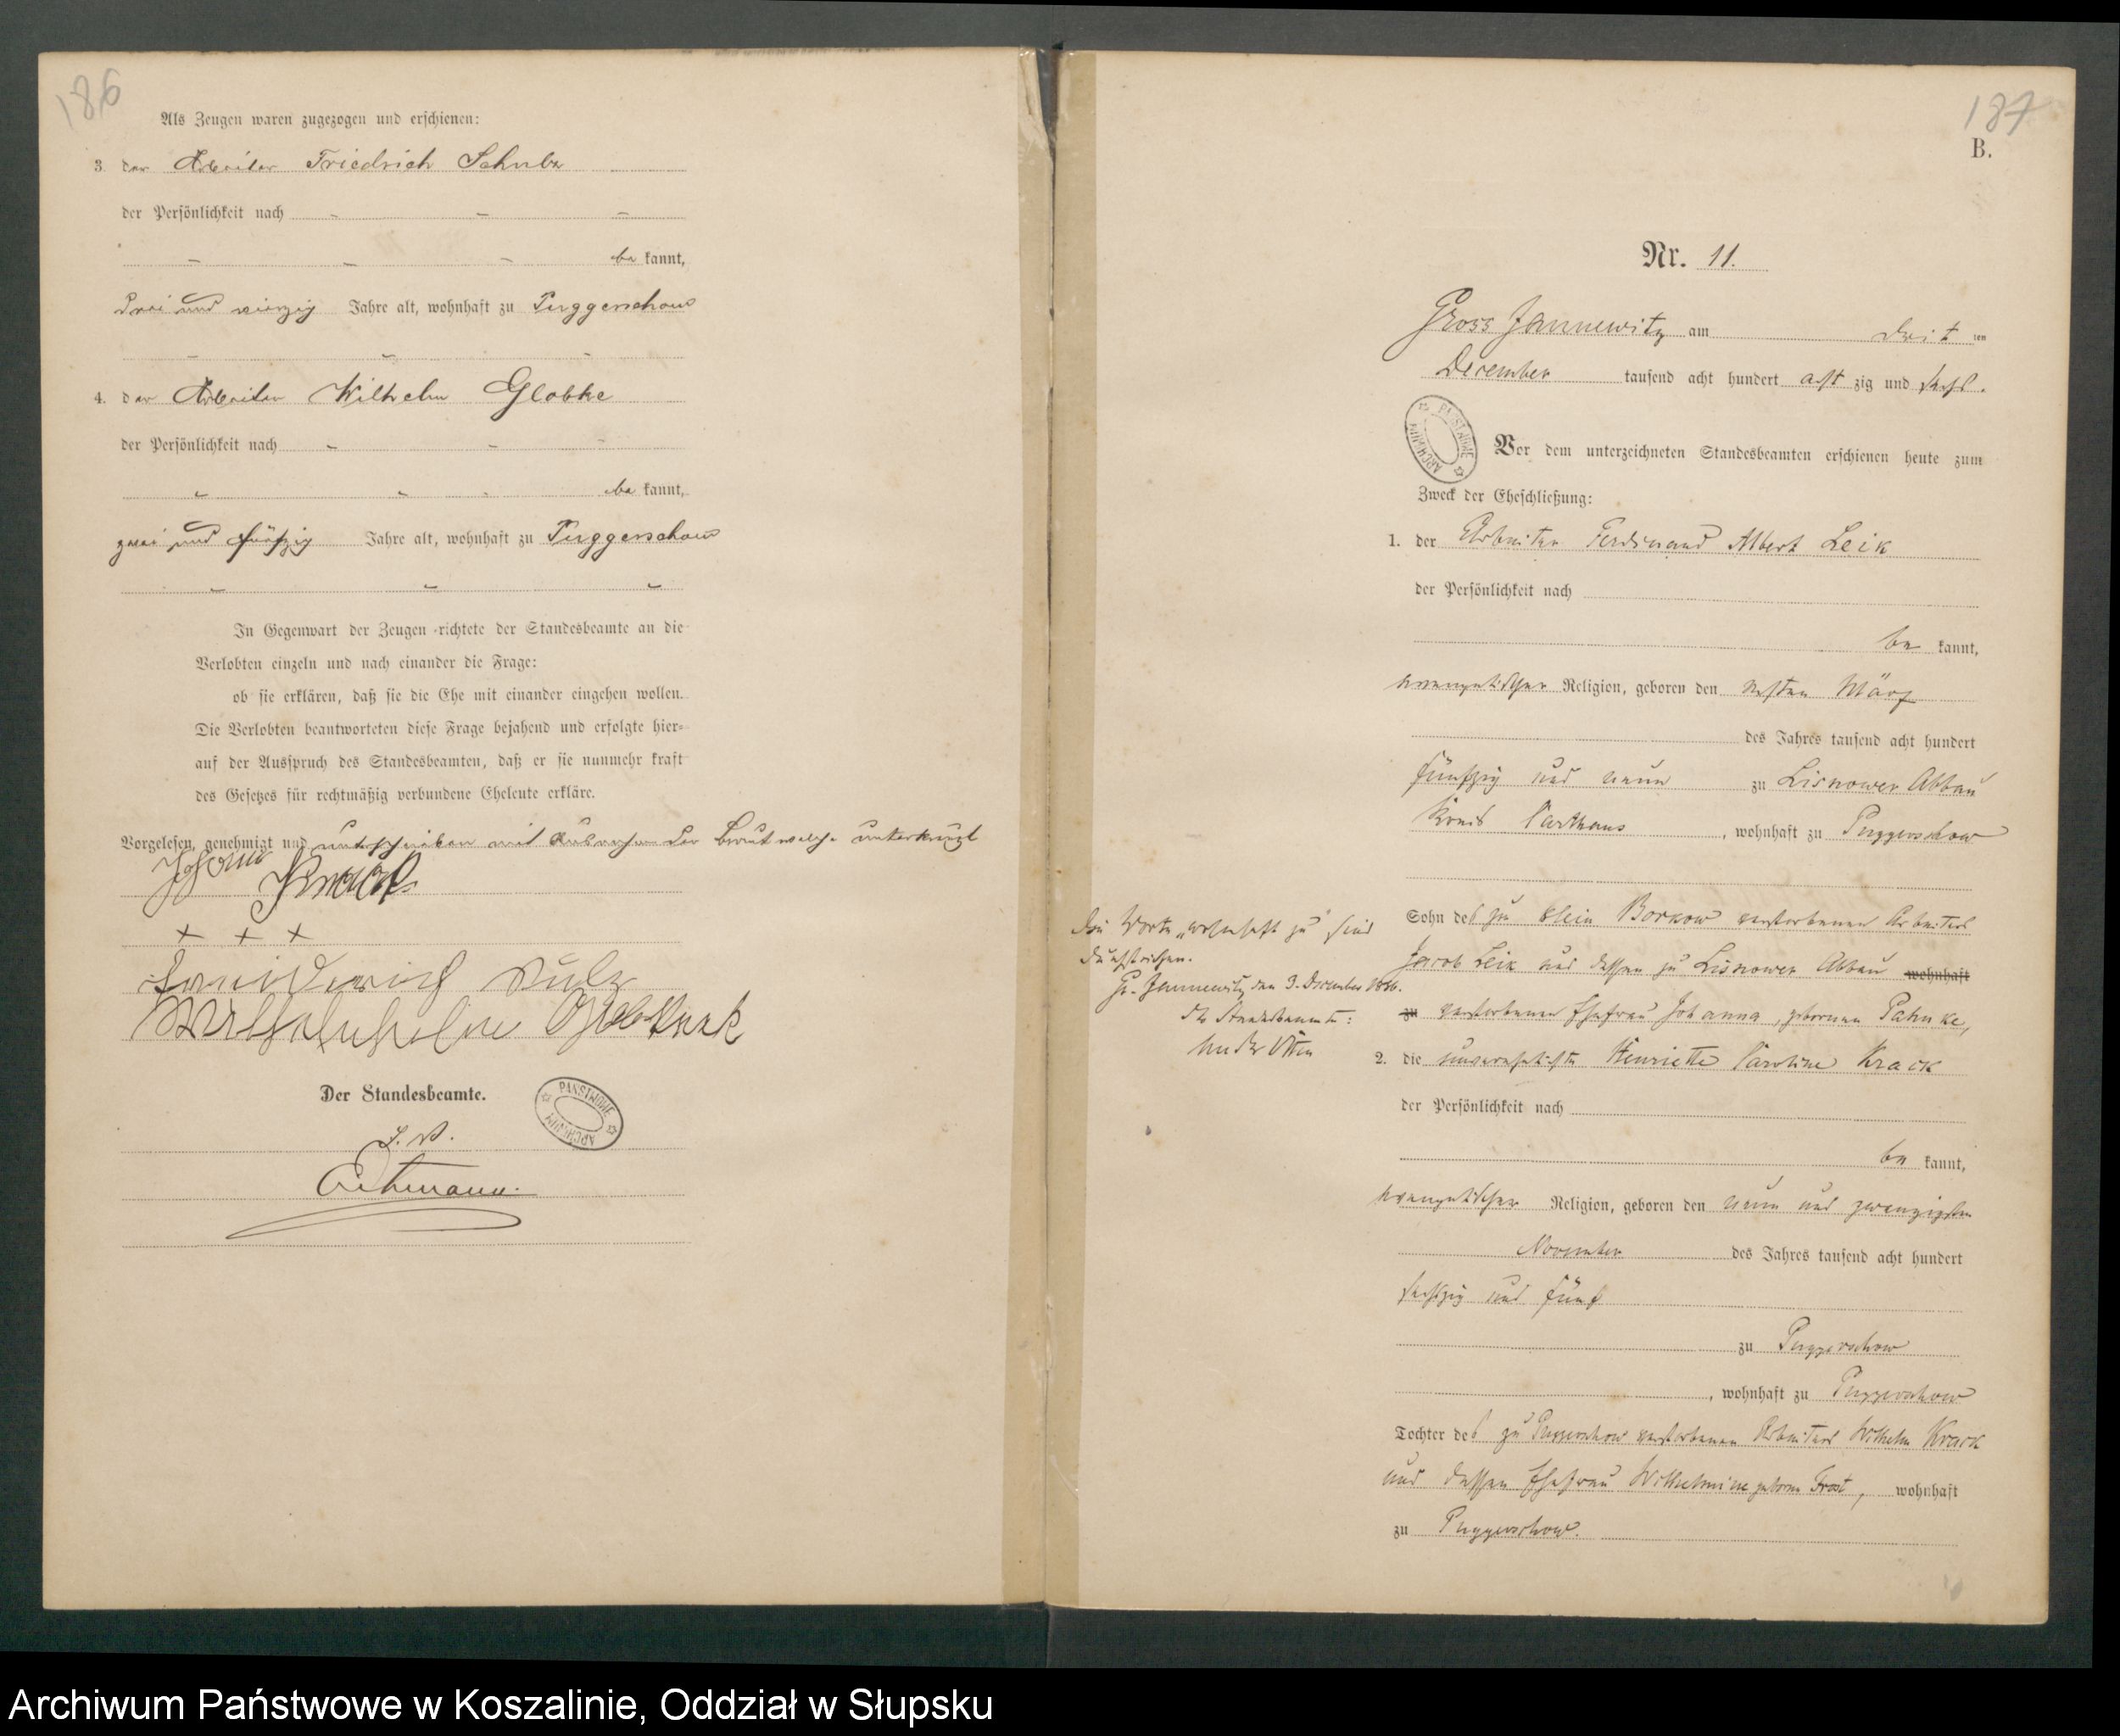 186
Als Zeugen waren zugezogen und erschienen:
3. der Arbeiter Friedrich Schulz
der Persönlichkeit nach - - -
- - - be kannt,
drei und vierzig Jahre alt, wohnhaft zu Puggerschow
- - -
4. der Arbeiter Wilhelm Globke
der Persönlichkeit nach - - -
- - - be kannt,
zwei und fünfzig Jahre alt, wohnhaft zu Puggerschow
- - -
In Gegenwart der Zeugen richtete der Standesbeamte an die
Verlobten einzeln und nach einander die Frage:
ob sie erklären, daß sie die Ehe mit einander eingehen wollen.
Die Verlobten beantworteten diese Frage bejahend und erfolgte hier-
auf der Ausspruch des Standesbeamten, daß er sie nunmehr kraft
des Gesetzes für rechtmäßig verbundene Eheleute erkläre.
Vorgelesen, genehmigt und unterschrieben mit Ausnahme der Braut welche unterkreuzt
Johann
+ + +
Der Standesbeamte.
I. V.
PAŃSTWOWE ARCHIWUM
187
B.
Nr. 11.
Gross Jannewitz am drit ten
December tausend acht hundert acht zig und sechs.
PAŃSTWOWE ARCHIWUM
Vor dem unterzeichneten Standesbeamten erschienen heute zum
Zweck der Eheschließung:
1. der Arbeiter Ferdinand Albert Leik
der Persönlichkeit nach
be kannt,
evangelischer Religion, geboren den ersten März
des Jahres tausend acht hundert
fünfzig und neun zu Lisnower Abbau
Kreis Carthaus, wohnhaft zu Puggerschow
Sohn des zu Klein Borkow verstorbenen Arbeiters
Jacob Leik und dessen zu Lisnower Abbau wohnhaft
zu verstorbenen Ehefrau Johanna, geborenen Pahnke,
Die Worte „wohnhaft zu" sind
durchstrichen.
Gr. Jannewitz den 3. December 1886.
Der Standesbeamte:
2. die unverehelichte Henriette Caroline Krack
der Persönlichkeit nach
be kannt,
evangelischer Religion, geboren den neun und zwanzigsten
November des Jahres tausend acht hundert
sechzig und fünf
zu Puggerschow
, wohnhaft zu Puggerschow
Tochter des zu Puggerschow verstorbenen Arbeiters Wilhelm Krack
und dessen Ehefrau Wilhelmine geborne Frost, wohnhaft
zu Puggerschow.
Archiwum Państwowe w Koszalinie, Oddział w Słupsku